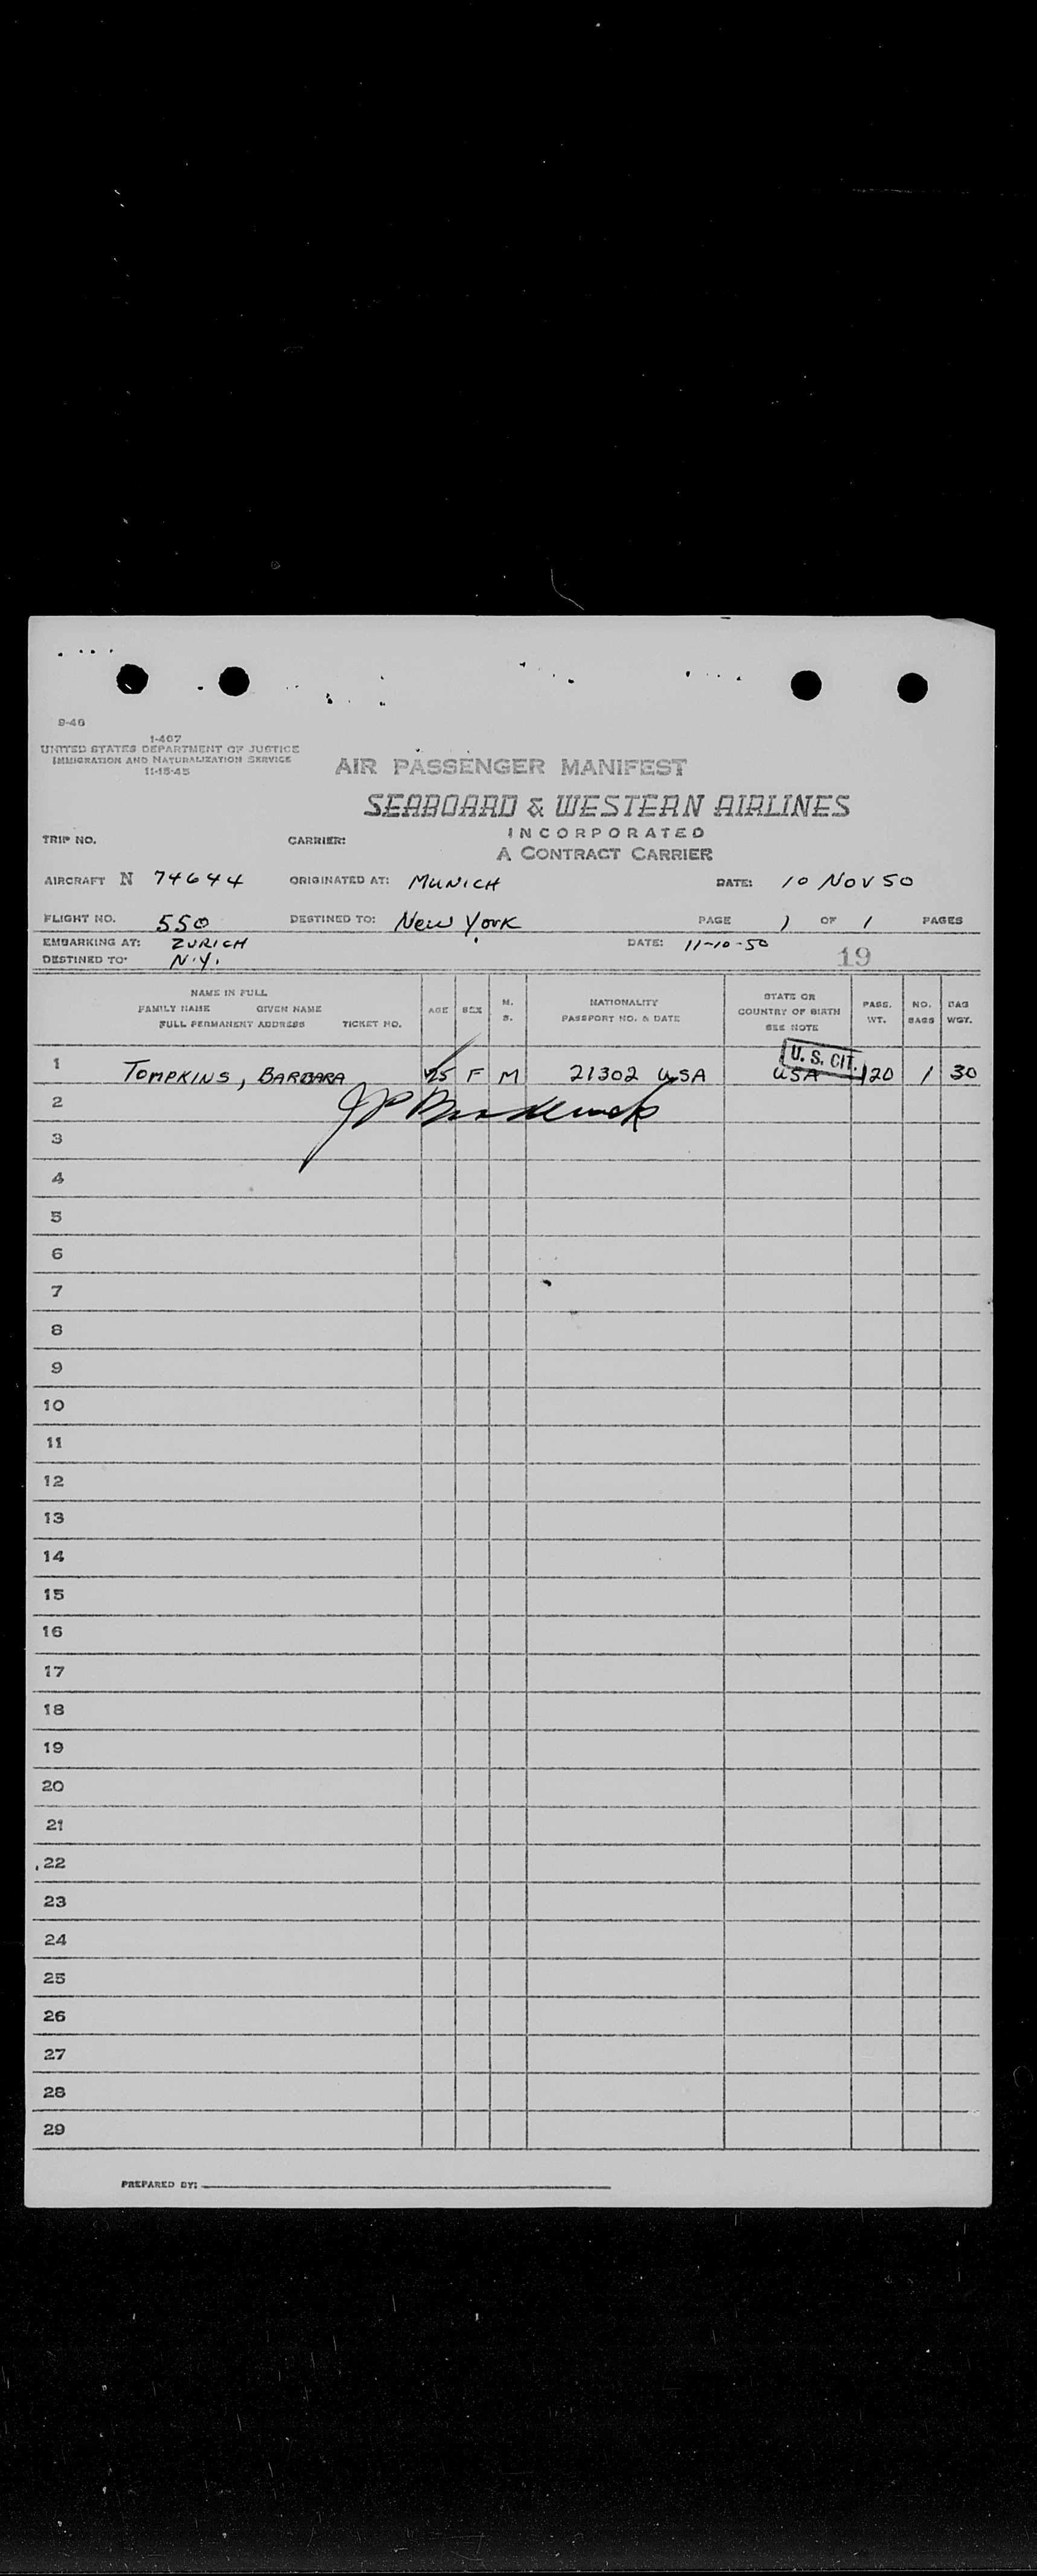 9-46
1-407
UNITED STATES DEPARTMENT OF JUSTICE
IMMIGRATION AND NATURALIZATION SERVICE
11-15-45
AIR PASSENGER MANIFEST
SEABOARD & WESTERN AIRLINES
INCORPORATED
A CONTRACT CARRIER
TRIP NO. CARRIER:
AIRCRAFT N 74644 ORIGINATED AT: MUNICH DATE: 10 NOV 50
FLIGHT NO. 550 DESTINED TO: New York PAGE 1 OF 1 PAGES
EMBARKING AT: ZURICH DATE: 11-10-50
DESTINED TO: N.Y. 19
NAME IN FULL
FAMILY NAME GIVEN NAME
FULL PERMANENT ADDRESS TICKET NO.
AGE SEX M. S.
NATIONALITY
PASSPORT NO. & DATE
STATE OR
COUNTRY OF BIRTH
SEE NOTE
PASS. WT.
NO. BAGS
BAG WGT.
U. S. CIT.
1 TOMPKINS, BARBARA 25 F M 21302 USA USA 120 1 30
2
3
4
5
6
7
8
9
10
11
12
13
14
15
16
17
18
19
20
21
22
23
24
25
26
27
28
29
PREPARED BY: